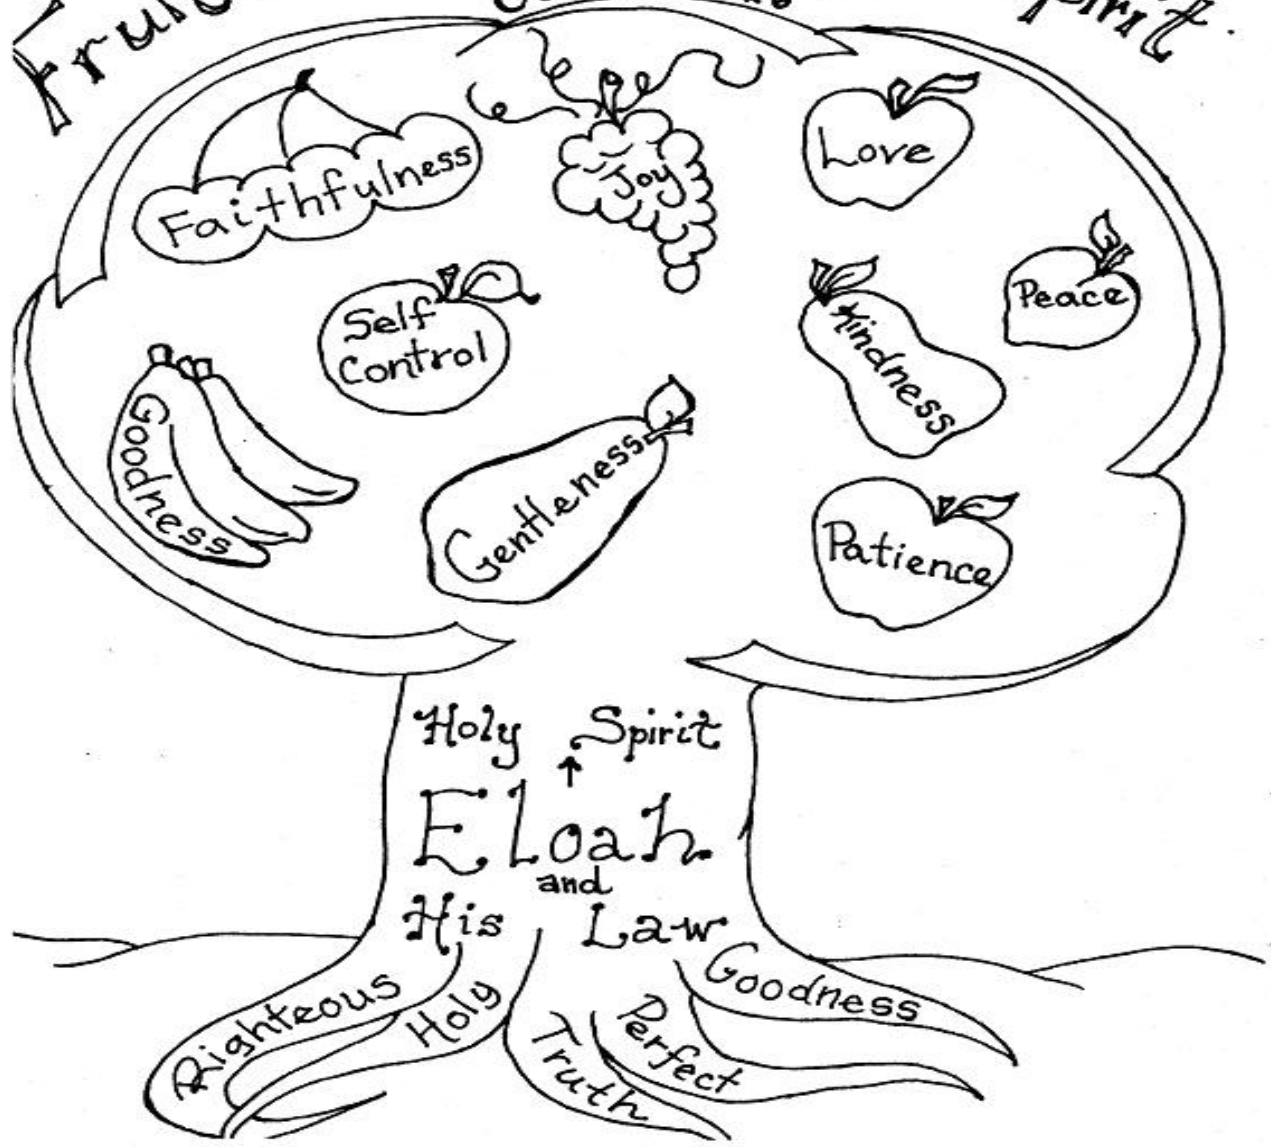 Spirit
Faithfulness
Joy
Love
Self
Control
Kindness
Peace
Goodness
Gentleness
Patience
Holy Spirit
Eloah
and
His Law
Righteous
Holy
Truth
Perfect
Goodness